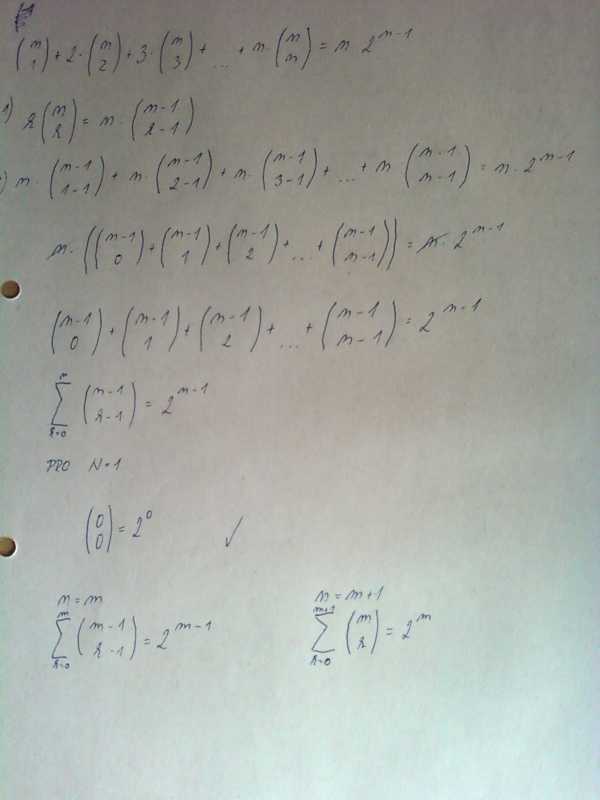 (n 1) + 2·(n 2) + 3·(n 3) + ... + n·(n n) = n 2^(n-1)
1) k(n k) = n·(n-1 k-1)
n·(n-1 1-1) + n·(n-1 2-1) + n·(n-1 3-1) + ... + n·(n-1 n-1) = n·2^(n-1)
n·{(n-1 0) + (n-1 1) + (n-1 2) + ... + (n-1 n-1)} = n·2^(n-1)
(n-1 0) + (n-1 1) + (n-1 2) + ... + (n-1 n-1) = 2^(n-1)
∑_(k=0)^n (n-1 k-1) = 2^(n-1)
PRO N=1
(0 0) = 2^0 ✓
n=m
∑_(k=0)^m (m-1 k-1) = 2^(m-1)
n=m+1
∑_(k=0)^(m+1) (m k) = 2^m